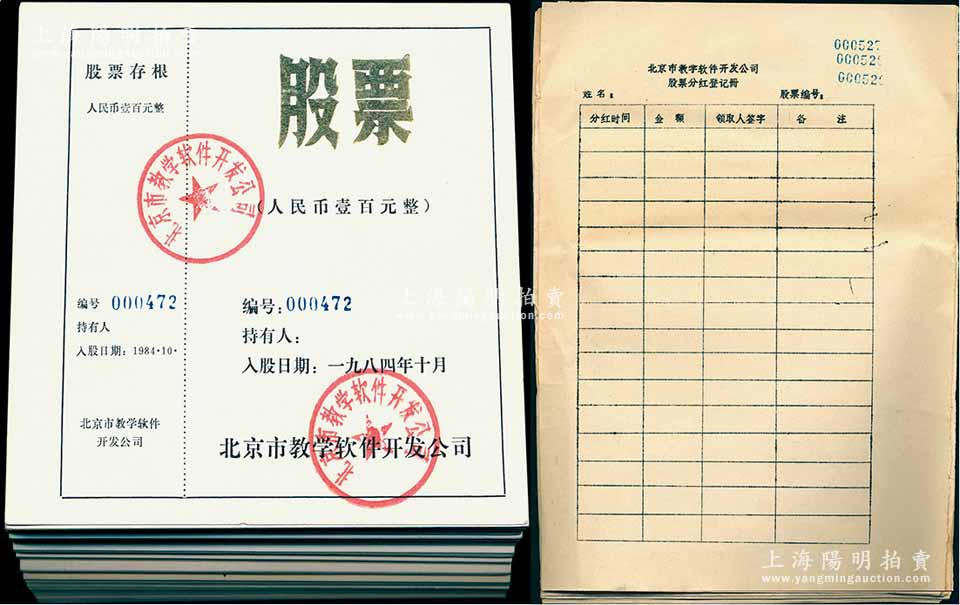 上海陽明拍賣
www.yangmingauction.com
股票存根
人民币壹百元整
北京市教学软件开发公司
编号 000472
持有人
入股日期：1984·10·
北京市教学软件
开发公司
股票
（人民币壹百元整）
编号：000472
持有人：
入股日期：一九八四年十月
北京市教学软件开发公司
北京市教学软件开发公司
上海陽明拍賣
www.yangmingauction.com
000527
000529
000528
北京市教学软件开发公司
股票分红登记册
姓名：
股票编号：
分红时间 金额 领取人签字 备注
上海陽明拍賣
www.yangmingauction.com